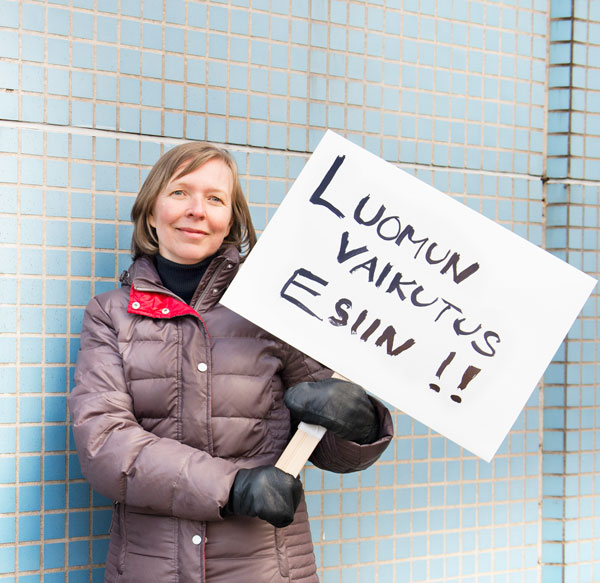 LUOMUN
VAIKUTUS
ESIIN!!